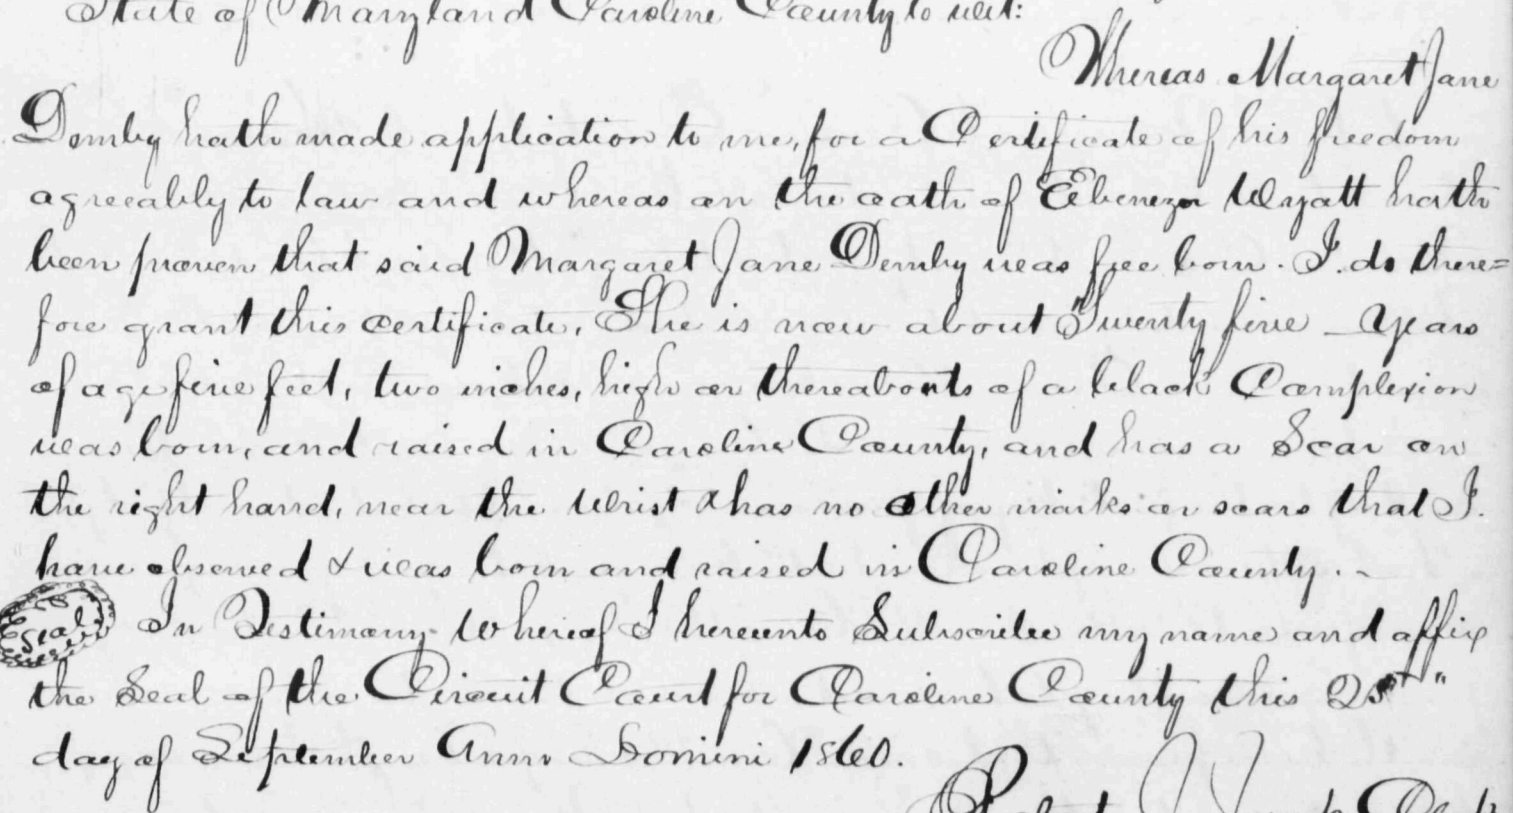 State of Maryland Caroline County to wit:
Whereas Margaret Jane
Demby hath made application to me, for a Certificate of his freedom
agreeably to law and whereas on the oath of Ebenezer Wyatt hath
been proven that said Margaret Jane Demby was free born. I. do there=
fore grant this certificate, She is now about Twenty five years
of age five feet, two inches, high or thereabouts of a black Complexion
was born, and raised in Caroline County, and has a Scar on
the right hand, near the Wrist & has no other marks or scars that I.
have observed & was born and raised in Caroline County.
Seal In Testimony Whereof I hereunto Subscribe my name and affix
the Seal of the Circuit Court for Caroline County this 25"
day of September Anno Domini 1860.